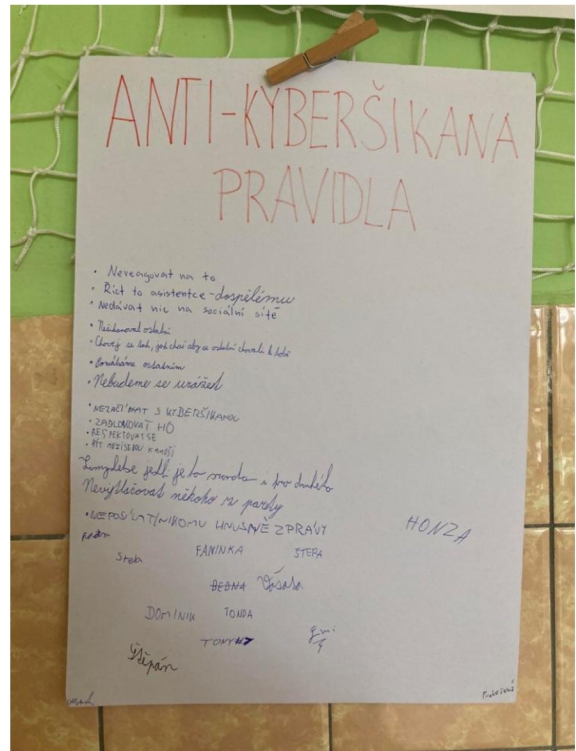 ANTI-KYBERŠIKANA
PRAVIDLA
• Nereagovat na to
• Říct to asistentce - dospělému
• Nedávat nic na sociální sítě
ostatní
• Chovej se tak, jak chceš aby se ostatní chovali k tobě
• Pomáháme ostatním
• Nebudeme se urážet
• NEZAČÍMAT S KYBERŠIKANOU
• ZABLOKOVAT HO
• RESPEKTOVAT SE
• BÝT
je to sranda i pro druhého
Nevytlačovat někoho z party
• NEPOSÍLAT NIKOMU HNUSNÉ ZPRÁVY
HONZA
FANINKA
ŠTEPA
Step
DOMINIK
TONDA
TONY
Štěpán